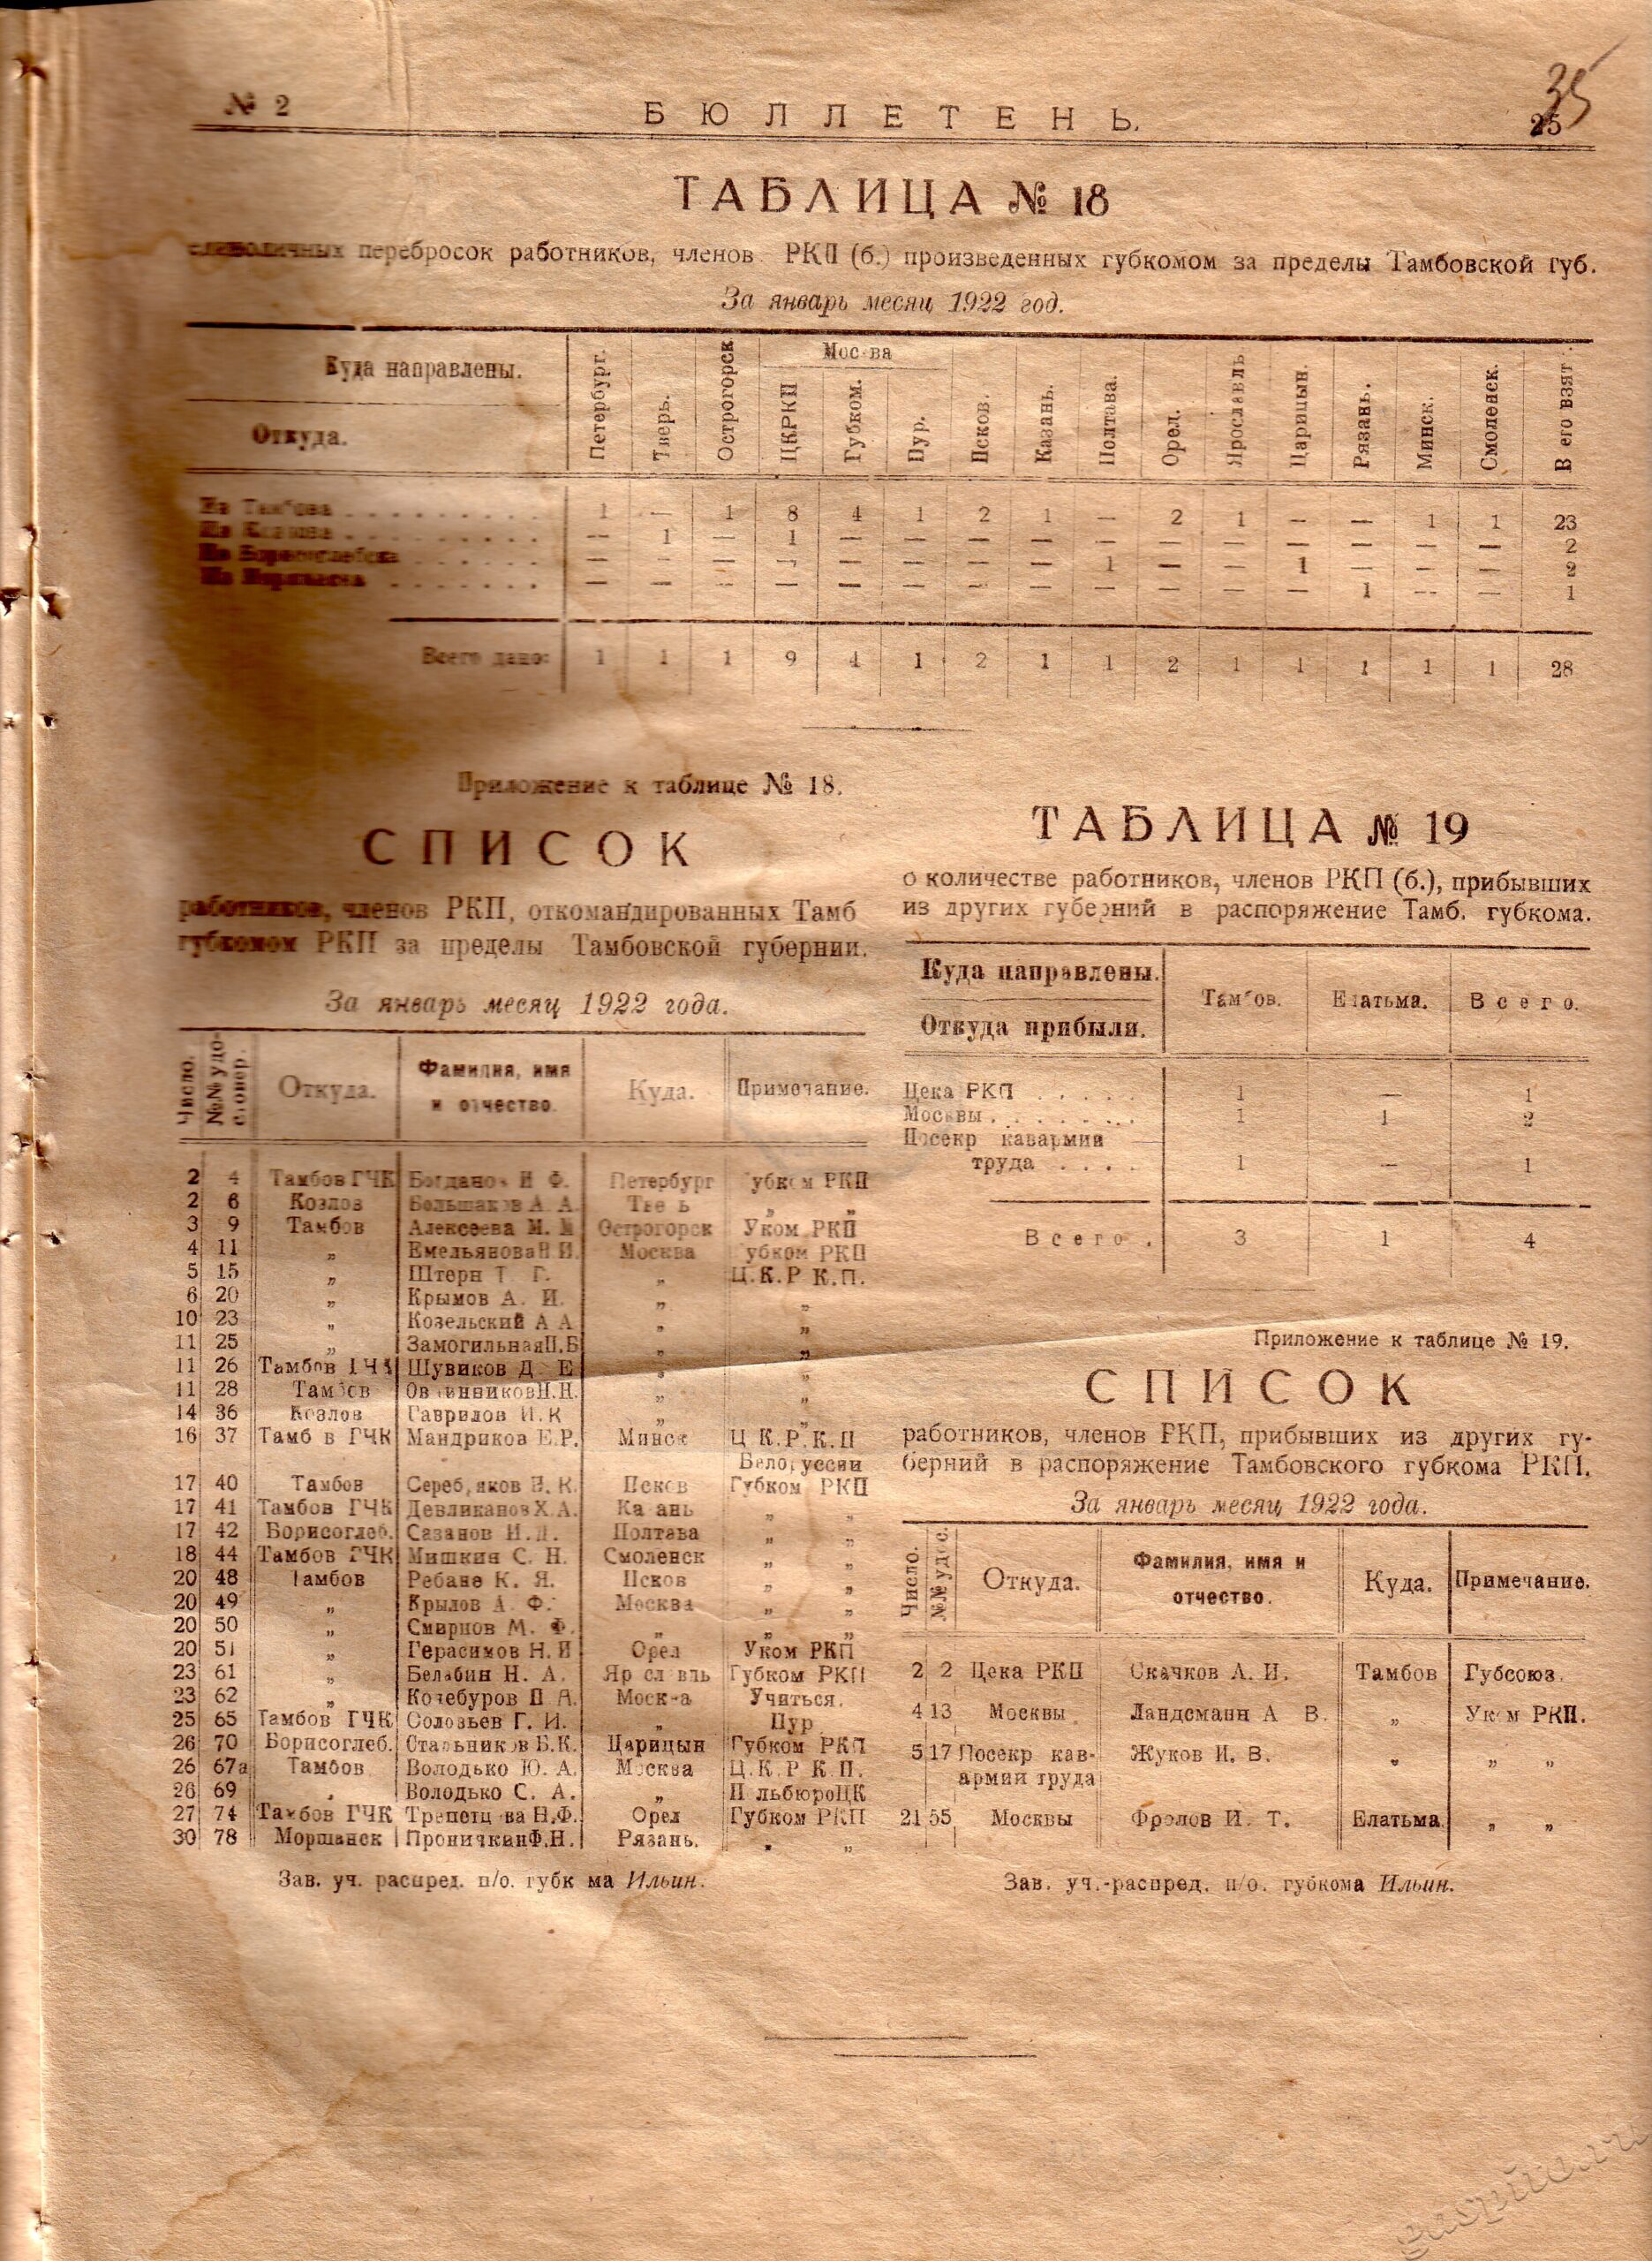 № 2
БЮЛЛЕТЕНЬ.
35
25
ТАБЛИЦА № 18
единоличных перебросок работников, членов РКП (б.) произведенных губкомом за пределы Тамбовской губ.
За январь месяц 1922 год.
Куда направлены.
Откуда.
Петербург. Тверь. Острогорск Москва ЦКРКП Губком. Пур. Псков. Казань. Полтава. Орел. Ярославль Царицын. Рязань. Минск. Смоленск. В его взят
Из Тамбова 1 — 1 8 4 1 2 1 — 2 1 — — 1 1 23
Из Козлова — 1 — 1 — — — — — — — — — — — 2
Из Борисоглебска — — — — — — — — 1 — — 1 — — — 2
Из Моршанска — — — — — — — — — — — — 1 — — 1
Всего дано: 1 1 1 9 4 1 2 1 1 2 1 1 1 1 1 28
Приложение к таблице № 18.
СПИСОК
работников, членов РКП, откомандированных Тамб
губкомом РКП за пределы Тамбовской губернии.
За январь месяц 1922 года.
Число. №№ удостовер. Откуда. Фамилия, имя и отчество. Куда. Примечание.
2 4 Тамбов ГЧК Богданов И Ф. Петербург убком РКП
2 6 Козлов Большаков А. А. Тве ь „ „
3 9 Тамбов Алексеева М. М Острогорск Уком РКП
4 11 „ Емельянова Москва убком РКП
5 15 „ Штерн Т Г. „ Ц.К.Р К.П.
6 20 „ Крымов А. И. „ „
10 23 „ Козельский А А „ „
11 25 „ Замогильная „ „
11 26 Тамбов ГЧК Шувиков Д Е „ „
11 28 Тамбов Ов инников „ „
14 36 Козлов Гаврилов И.К „ „
16 37 Тамб в ГЧК Мандриков Е.Р. Минск Ц К.Р.К.П
Белоруссии
17 40 Тамбов Сереб яков Псков Губком РКП
17 41 Тамбов ГЧК Девликанов Х.А. Ка ань „ „
17 42 Борисоглеб. Сазанов Полтава „ „
18 44 Тамбов ГЧК Мишкин С. Н. Смоленск „ „
20 48 Тамбов Ребане К. Я. Псков „ „
20 49 „ Крылов А. Ф. Москва „ „
20 50 „ Смирнов М. Ф. „ „ „
20 51 „ Герасимов Н. И Орел Уком РКП
23 61 „ Белабин Н. А. Яр сл вль Губком РКП
23 62 „ Котебуров П А. Моск-а Учиться.
25 65 Тамбов ГЧК Соловьев Г. И. „ Пур
26 70 Борисоглеб. Стальников Б.К. Царицын Губком РКП
26 67а Тамбов Володько Ю. А. Москва Ц.К.Р К.П.
26 69 „ Володько С. А. „ П льбюроЦК
27 74 Тамбов ГЧК Трепетц ва Н.Ф. Орел Губком РКП
30 78 Моршанск Проничкин Ф.Н. Рязань. „ „
Зав. уч. распред. п/о. губк ма Ильин.
ТАБЛИЦА № 19
о количестве работников, членов РКП (б.), прибывших
из других губерний в распоряжение Тамб. губкома.
Куда направлены.
Откуда прибыли.
Тамбов. Елатьма. Всего.
Цека РКП 1 — 1
Москвы 1 1 2
Посекр кавармии
труда 1 — 1
Всего. 3 1 4
Приложение к таблице № 19.
СПИСОК
работников, членов РКП, прибывших из других гу-
берний в распоряжение Тамбовского губкома РКП.
За январь месяц 1922 года.
Число. №№ удос. Откуда. Фамилия, имя и отчество. Куда. Примечание.
2 2 Цека РКП Скачков А. И. Тамбов Губсоюз.
4 13 Москвы Ландсманн А В. „ Уком РКП.
5 17 Посекр кав- Жуков И. В. „ „ „
армии труда
21 55 Москвы Фролов И. Т. Елатьма „ „
Зав. уч.-распред. п/о. губкома Ильин.
gaspito.ru